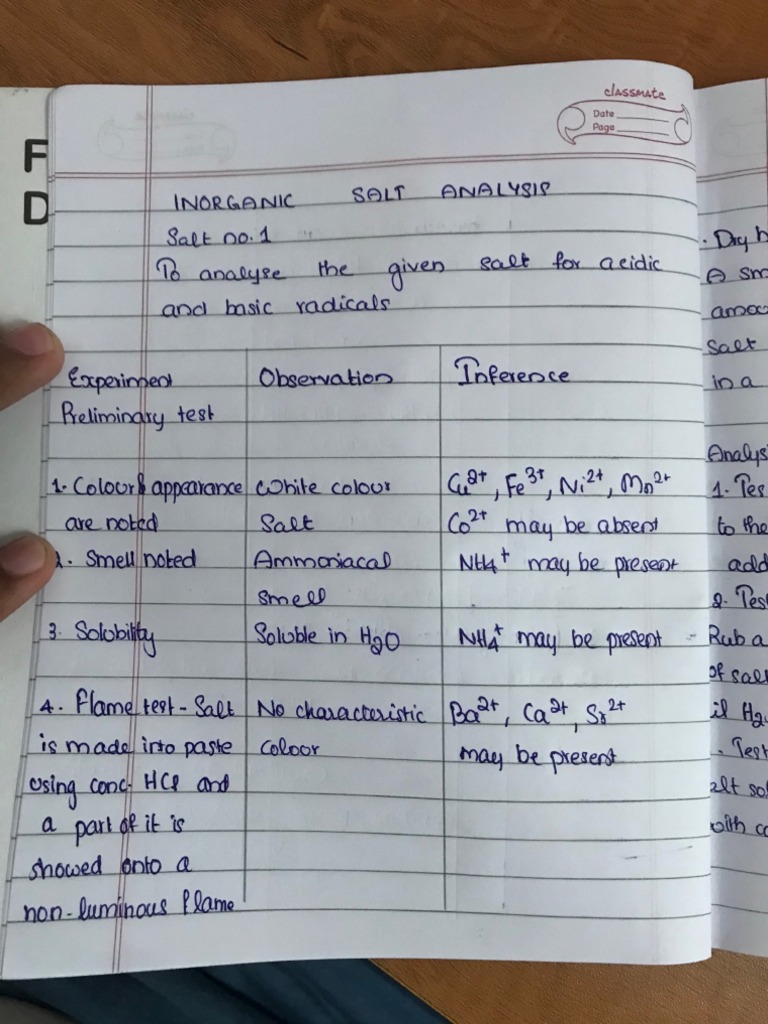 F
D
classmate
Date
Page
INORGANIC SALT ANALYSIS
Salt no. 1
To analyse the given salt for acidic
and basic radicals
Experiment Observation Inference
Preliminary test
1. Colour & appearance White colour Cu2+, Fe3+, Ni2+, Mn2+
are noted Salt Co2+ may be absent
2. Smell noted Ammoniacal NH4+ may be present
smell
3. Solubility Soluble in H2O NH4+ may be present
4. Flame test - Salt No characteristic Ba2+, Ca2+, Sr2+
is made into paste colour may be present
using conc. HCl and
a part of it is
showed onto a
non-luminous flame
. Dry h
A sm
amou
Salt
in a
Analysi
1. Tes
to the
add
2. Tes
- Rub a
of sal
il H2
. Test
alt so
with c